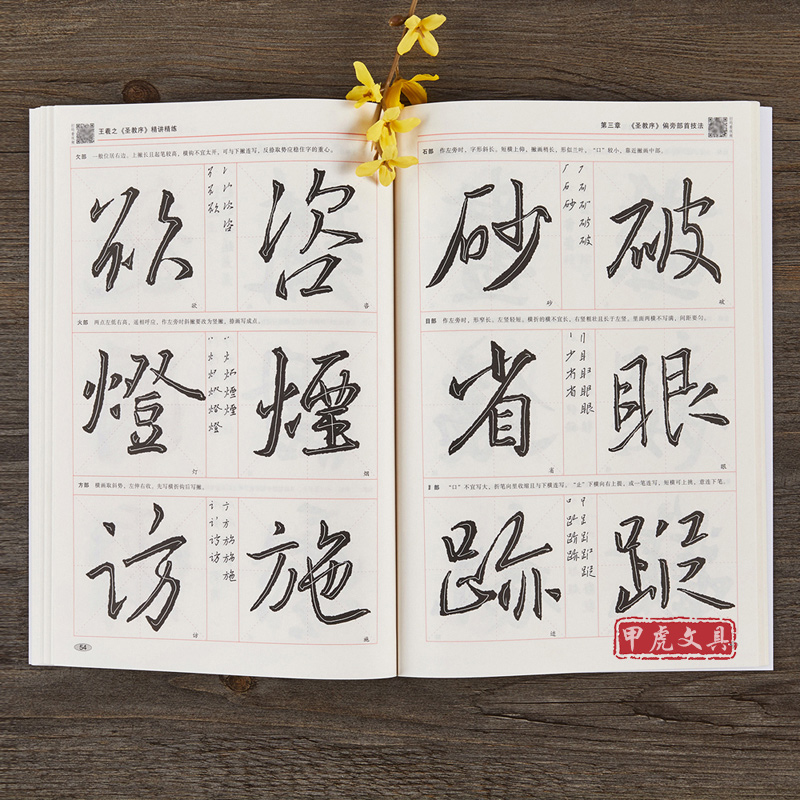 王羲之《圣教序》精讲精练
欠部 一般位居右边。上撇长且起笔较高，横钩不宜太开，可与下撇连写，反捺取势应稳住字的重心。
欲 咨
欲 咨
火部 两点左低右高，遥相呼应，作左旁时斜撇要改为竖撇，捺画写成点。
燈 煙
灯 烟
方部 横画取斜势，左伸右收，先写横折钩后写撇。
访 施
访 施
54
第三章 《圣教序》偏旁部首技法
石部 作左旁时，字形斜长，短横上仰，撇画稍长，形似兰叶。“口”较小，靠近撇画中部。
砂 破
砂 破
目部 作左旁时，形窄长。左竖较短。横折的横不宜长，右竖粗壮且长于左竖。里面两横不写满，间距要匀。
省 眼
省 眼
部 “口”不宜写大，折笔向里收缩且与下横连写。“止”下横向右上翘。或一笔连写，短横可上挑，意连下笔。
跡 蹤
迹
甲虎文具